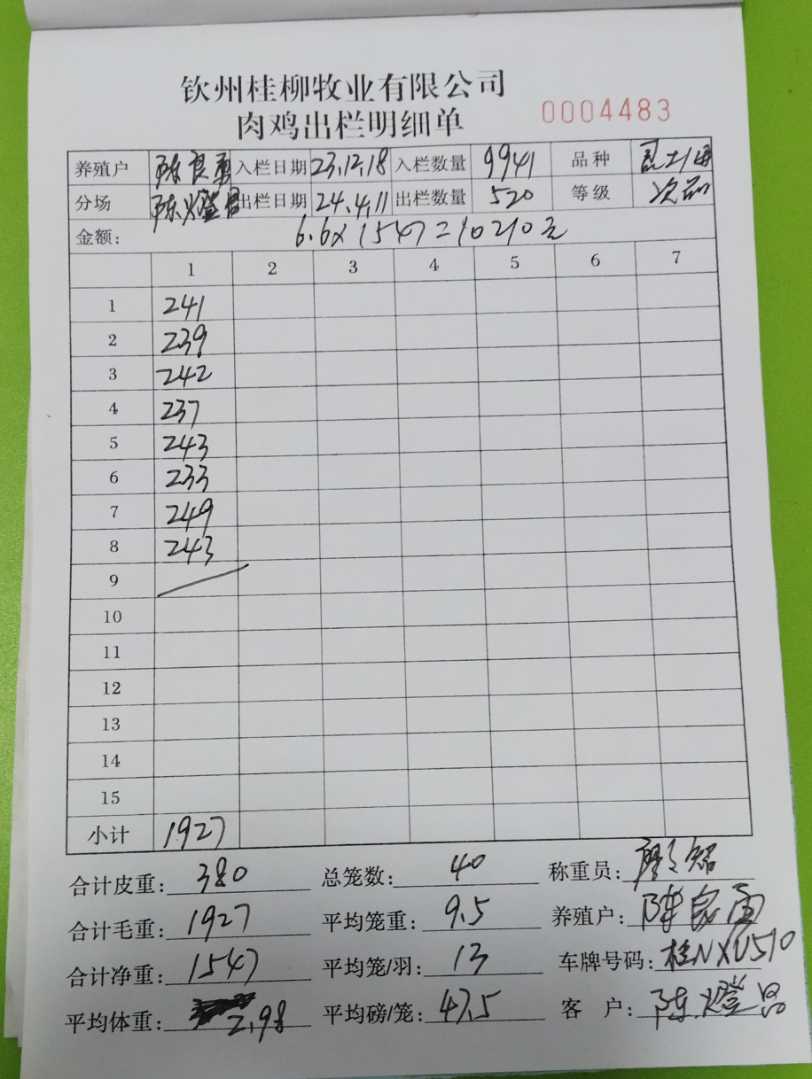 钦州桂柳牧业有限公司
肉鸡出栏明细单 0004483
养殖户 陈良勇 入栏日期 23.12.18 入栏数量 9941 品种
分场 陈燈昌 出栏日期 24.4.11 出栏数量 520 等级 次品
金额: 6.6×1547=10210元
1 2 3 4 5 6 7
1 241
2 239
3 242
4 237
5 243
6 233
7 249
8 243
9
10
11
12
13
14
15
小计 1927
合计皮重: 380 总笼数: 40 称重员:
合计毛重: 1927 平均笼重: 9.5 养殖户:
合计净重: 1547 平均笼/羽: 13 车牌号码: 桂NXU510
平均体重: 2.98 平均磅/笼: 47.5 客 户: 陈燈昌